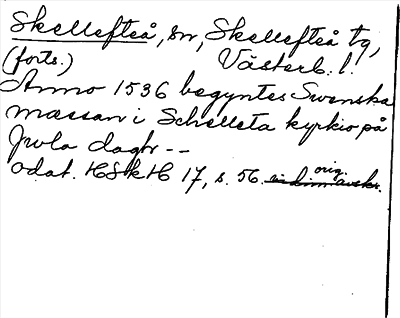 Skellefteå, sn, Skellefteå tg,
(forts.) Västerb. l.
Anno 1536 begyntes Swenska
mässan i Schelleta kyrkio på
Jwla dagh --
odat. HSkH 17, s. 56. orig.